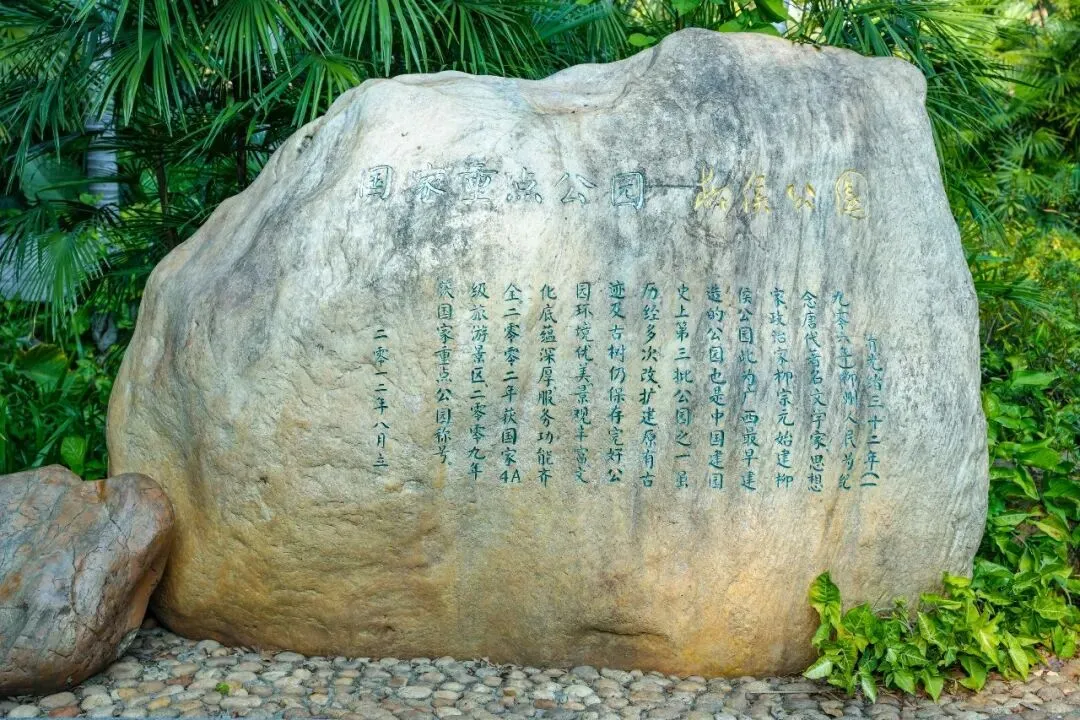 国家重点公园—柳侯公园
光绪三十二年(一
九零六年)柳州人民为纪
念唐代著名文学家、思想
家政治家柳宗元始建柳
侯公园此为广西最早建
造的公园也是中国建园
史上第三批公园之一虽
历经多次改、扩建原有古
迹及古树仍保存完好公
园环境优美景观丰富文
化底蕴深厚服务功能齐
全二零零二年获国家4A
级旅游景区二零零九年
获国家重点公园称号。
二零一二年八月立